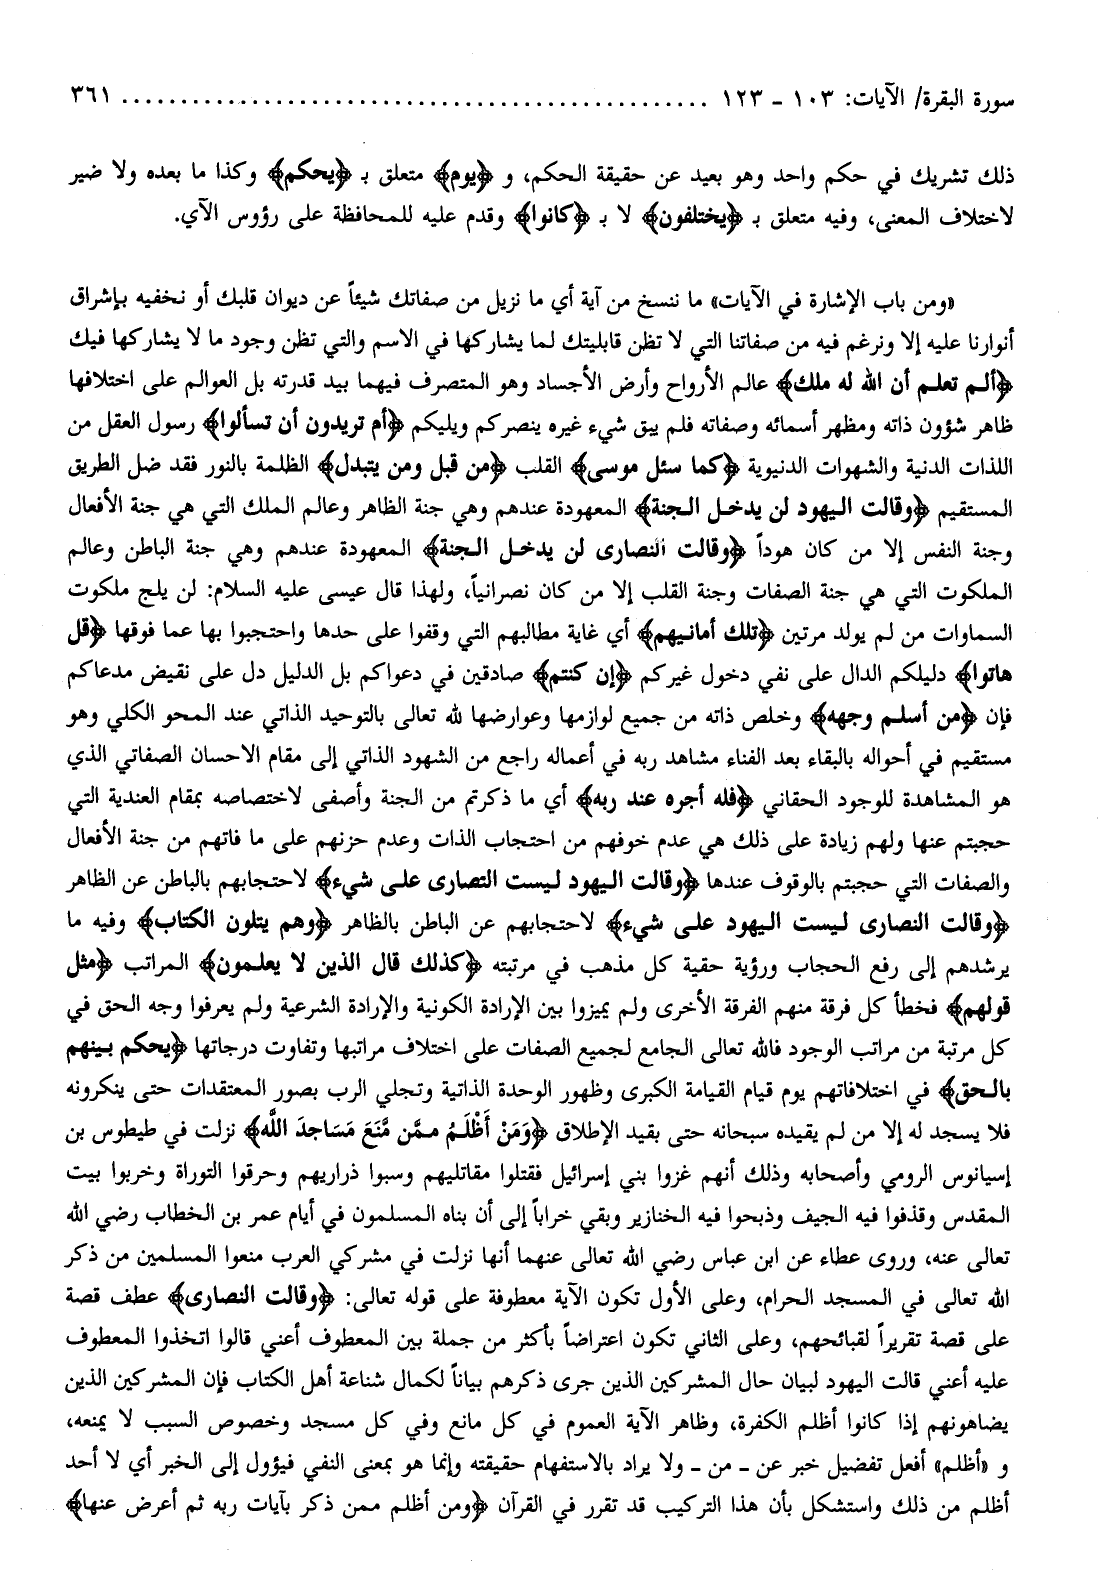 سورة البقرة/ الآيات: ١٠٣ ـ ١٢٣ ................................................ ٣٦١
ذلك تشريك في حكم واحد وهو بعيد عن حقيقة الحكم، و ﴿يوم﴾ متعلق بـ ﴿يحكم﴾ وكذا ما بعده ولا ضير
لاختلاف المعنى، وفيه متعلق بـ ﴿يختلفون﴾ لا بـ ﴿كانوا﴾ وقدم عليه للمحافظة على رؤوس الآي.
«ومن باب الإشارة في الآيات» ما ننسخ من آية أي ما نزيل من صفاتك شيئاً عن ديوان قلبك أو نخفيه بإشراق
أنوارنا عليه إلا ونرغم فيه من صفاتنا التي لا تظن قابليتك لما يشاركها في الاسم والتي تظن وجود ما لا يشاركها فيك
﴿ألم تعلم أن الله له ملك﴾ عالم الأرواح وأرض الأجساد وهو المتصرف فيهما بيد قدرته بل العوالم على اختلافها
ظاهر شؤون ذاته ومظهر أسمائه وصفاته فلم يبق شيء غيره ينصركم ويليكم ﴿أم تريدون أن تسألوا﴾ رسول العقل من
اللذات الدنية والشهوات الدنيوية ﴿كما سئل موسى﴾ القلب ﴿من قبل ومن يتبدل﴾ الظلمة بالنور فقد ضل الطريق
المستقيم ﴿وقالت اليهود لن يدخل الجنة﴾ المعهودة عندهم وهي جنة الظاهر وعالم الملك التي هي جنة الأفعال
وجنة النفس إلا من كان هوداً ﴿وقالت النصارى لن يدخل الجنة﴾ المعهودة عندهم وهي جنة الباطن وعالم
الملكوت التي هي جنة الصفات وجنة القلب إلا من كان نصرانياً، ولهذا قال عيسى عليه السلام: لن يلج ملكوت
السماوات من لم يولد مرتين ﴿تلك أمانيهم﴾ أي غاية مطالبهم التي وقفوا على حدها واحتجبوا بها عما فوقها ﴿قل
هاتوا﴾ دليلكم الدال على نفي دخول غيركم ﴿إن كنتم﴾ صادقين في دعواكم بل الدليل دل على نقيض مدعاكم
فإن ﴿من أسلم وجهه﴾ وخلص ذاته من جميع لوازمها وعوارضها لله تعالى بالتوحيد الذاتي عند المحو الكلي وهو
مستقيم في أحواله بالبقاء بعد الفناء مشاهد ربه في أعماله راجع من الشهود الذاتي إلى مقام الاحسان الصفاتي الذي
هو المشاهدة للوجود الحقاني ﴿فله أجره عند ربه﴾ أي ما ذكرتم من الجنة وأصفى لاختصاصه بمقام العندية التي
حجبتم عنها ولهم زيادة على ذلك هي عدم خوفهم من احتجاب الذات وعدم حزنهم على ما فاتهم من جنة الأفعال
والصفات التي حجبتم بالوقوف عندها ﴿وقالت اليهود ليست النصارى على شيء﴾ لاحتجابهم بالباطن عن الظاهر
﴿وقالت النصارى ليست اليهود على شيء﴾ لاحتجابهم عن الباطن بالظاهر ﴿وهم يتلون الكتاب﴾ وفيه ما
يرشدهم إلى رفع الحجاب ورؤية حقية كل مذهب في مرتبته ﴿كذلك قال الذين لا يعلمون﴾ المراتب ﴿مثل
قولهم﴾ فخطأ كل فرقة منهم الفرقة الأخرى ولم يميزوا بين الإرادة الكونية والإرادة الشرعية ولم يعرفوا وجه الحق في
كل مرتبة من مراتب الوجود فالله تعالى الجامع لجميع الصفات على اختلاف مراتبها وتفاوت درجاتها ﴿يحكم بينهم
بالحق﴾ في اختلافاتهم يوم قيام القيامة الكبرى وظهور الوحدة الذاتية وتجلي الرب بصور المعتقدات حتى ينكرونه
فلا يسجد له إلا من لم يقيده سبحانه حتى بقيد الإطلاق ﴿وَمَنْ أَظْلَمُ ممَّن مَّنَعَ مَسَاجدَ اللَّه﴾ نزلت في طيطوس بن
إسيانوس الرومي وأصحابه وذلك أنهم غزوا بني إسرائيل فقتلوا مقاتليهم وسبوا ذراريهم وحرقوا التوراة وخربوا بيت
المقدس وقذفوا فيه الجيف وذبحوا فيه الخنازير وبقي خراباً إلى أن بناه المسلمون في أيام عمر بن الخطاب رضي الله
تعالى عنه، وروى عطاء عن ابن عباس رضي الله تعالى عنهما أنها نزلت في مشركي العرب منعوا المسلمين من ذكر
الله تعالى في المسجد الحرام، وعلى الأول تكون الآية معطوفة على قوله تعالى: ﴿وقالت النصارى﴾ عطف قصة
على قصة تقريراً لقبائحهم، وعلى الثاني تكون اعتراضاً بأكثر من جملة بين المعطوف أعني قالوا اتخذوا المعطوف
عليه أعني قالت اليهود لبيان حال المشركين الذين جرى ذكرهم بياناً لكمال شناعة أهل الكتاب فإن المشركين الذين
يضاهونهم إذا كانوا أظلم الكفرة، وظاهر الآية العموم في كل مانع وفي كل مسجد وخصوص السبب لا يمنعه،
و «أظلم» أفعل تفضيل خبر عن ـ من ـ ولا يراد بالاستفهام حقيقته وإنما هو بمعنى النفي فيؤول إلى الخبر أي لا أحد
أظلم من ذلك واستشكل بأن هذا التركيب قد تقرر في القرآن ﴿ومن أظلم ممن ذكر بآيات ربه ثم أعرض عنها﴾